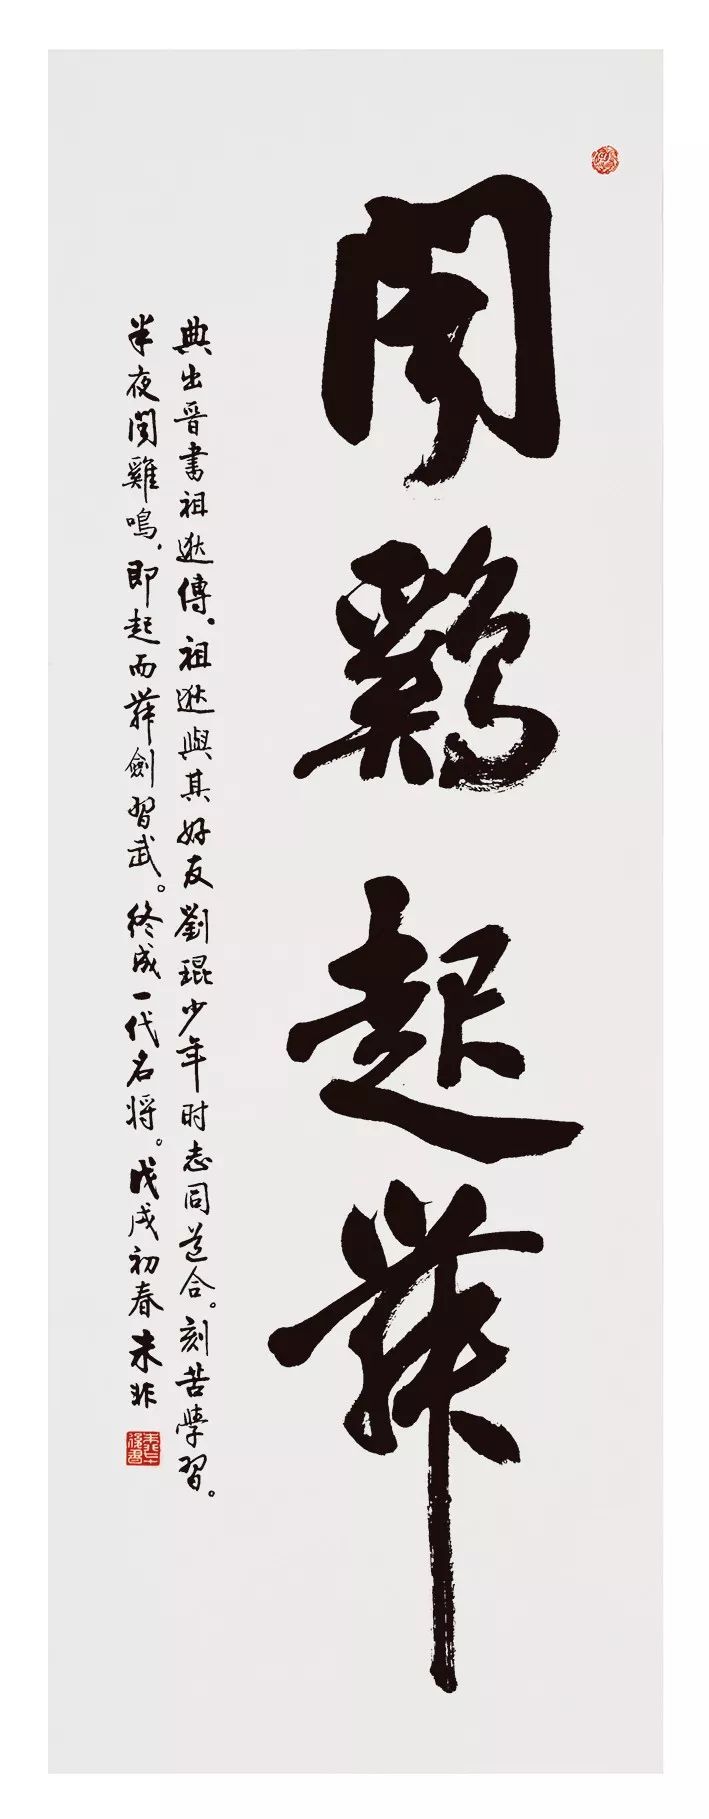 闻鷄起舞
典出晋書祖逖傳、祖逖與其好友劉琨少年时志同道合。刻苦學習。
半夜闻雞鳴、即起而舞劍習武。终成一代名将。戊戌初春未非